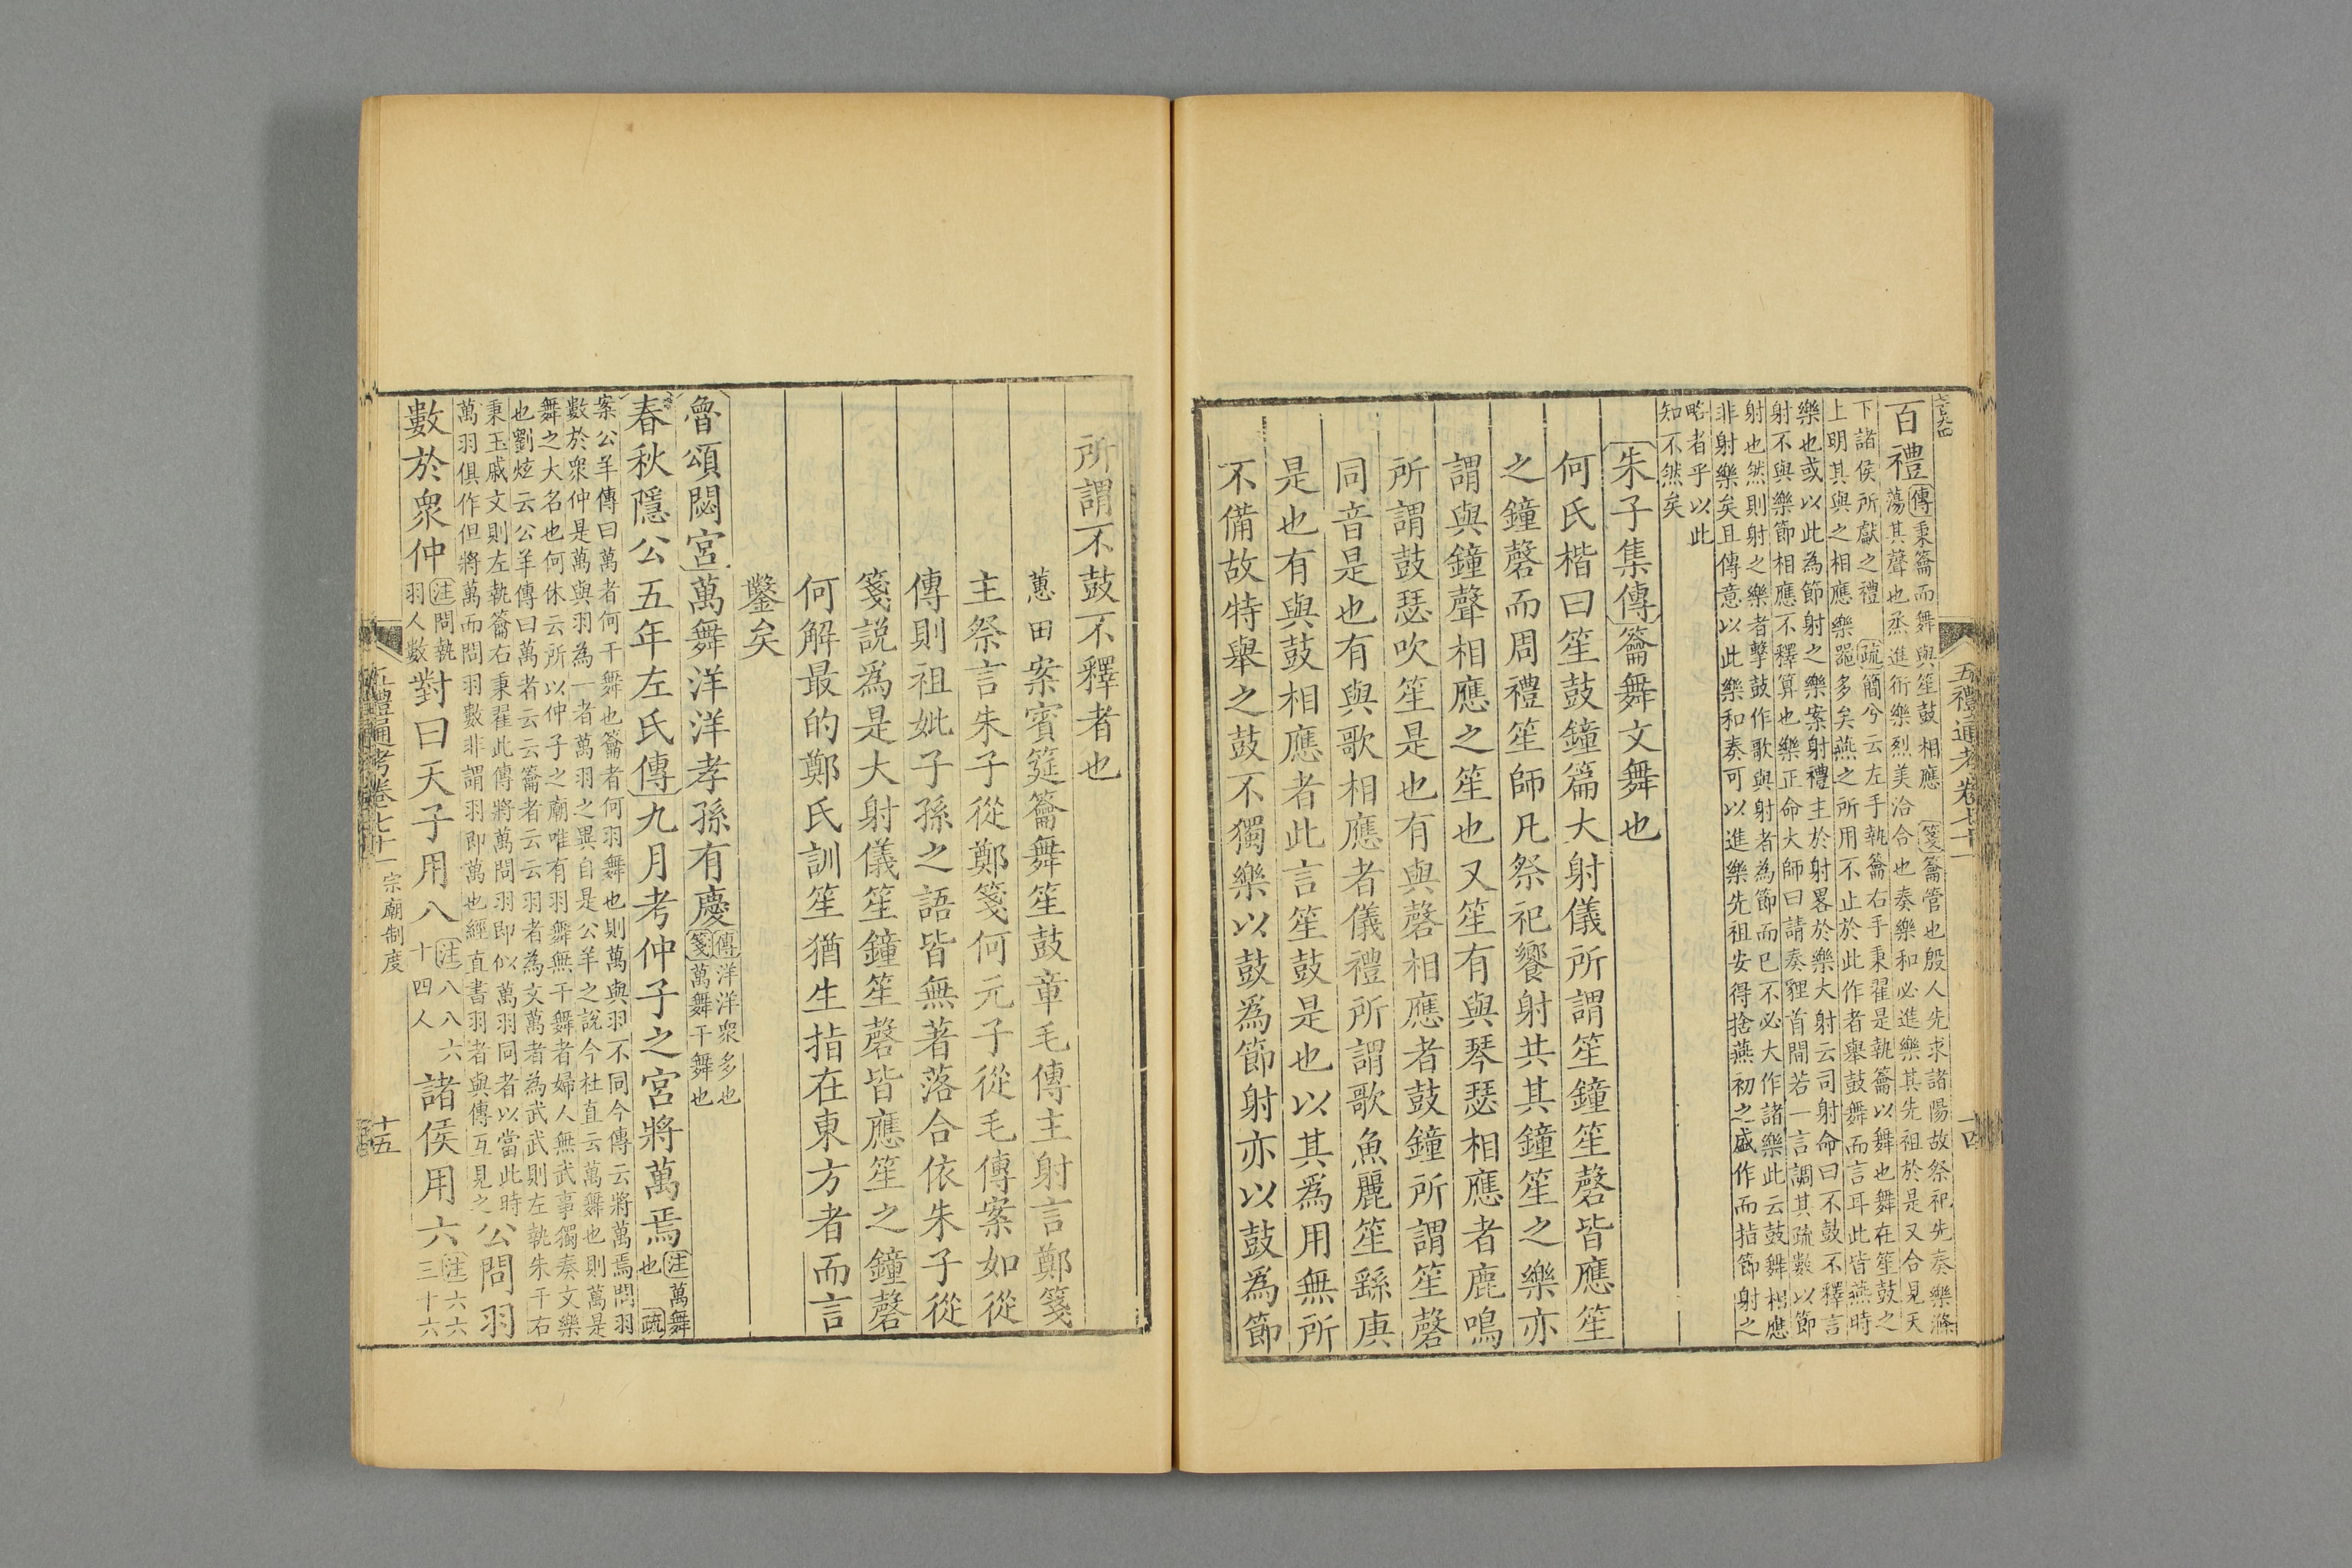 五禮通考卷七十一
十四
百禮
傳秉籥而舞與笙鼓相應
箋籥管也殷人先求諸陽故祭祀先奏樂滌
蕩其聲也烝進衎樂烈美洽合也奏樂和必進樂其先祖於是又合見天
下諸侯所獻之禮
疏簡兮云左手執籥右手秉翟是執籥以舞也舞在笙鼓之
上明其與之相應樂器多矣燕之所用不止於此作者舉鼓舞而言耳此皆燕時
樂也或以此為節射之樂案射禮主於射畧於樂大射云司射命曰不鼓不釋言
射不與樂節相應不釋算也樂正命大師曰請奏貍首間若一言調其疏數以節
射也然則射之樂者擊鼓作歌與射者為節而已不必大作諸樂此云鼓舞相應
非射樂矣且傳意以此樂和奏可以進樂先祖安得捨燕初之盛作而指節射之
略者乎以此
知不然矣
朱子集傳籥舞文舞也
何氏楷曰笙鼓鐘篇大射儀所謂笙鐘笙磬皆應笙
之鐘磬而周禮笙師凡祭祀饗射共其鐘笙之樂亦
謂與鐘聲相應之笙也又笙有與琴瑟相應者鹿鳴
所謂鼓瑟吹笙是也有與磬相應者鼓鐘所謂笙磬
同音是也有與歌相應者儀禮所謂歌魚麗笙繇庚
是也有與鼓相應者此言笙鼓是也以其為用無所
不備故特舉之鼓不獨樂以鼓為節射亦以鼓為節
所謂不鼓不釋者也
蕙田案賓筵籥舞笙鼓章毛傳主射言鄭箋
主祭言朱子從鄭箋何元子從毛傳案如從
傳則祖妣子孫之語皆無著落合依朱子從
箋說為是大射儀笙鐘笙磬皆應笙之鐘磬
何解最的鄭氏訓笙猶生指在東方者而言
鑿矣
魯頌閟宮萬舞洋洋孝孫有慶
傳洋洋衆多也
箋萬舞干舞也
春秋隱公五年左氏傳九月考仲子之宮將萬焉
注萬舞
也
疏
案公羊傳曰萬者何干舞也籥者何羽舞也則萬與羽不同今傳云將萬焉問羽
數於衆仲是萬與羽為一者萬羽之異自是公羊之說今杜直云萬舞也則萬是
舞之大名也何休云所以仲子之廟唯有羽舞無干舞者婦人無武事獨奏文樂
也劉炫云公羊傳曰萬者云云籥者云云羽者為文萬者為武武則左執朱干右
秉玉戚文則左執籥右秉翟此傳將萬問羽即似萬羽同者以當此時
萬羽俱作但將萬而問羽數非謂羽即萬也經直書羽者與傳互見之
公問羽
數於衆仲
注問執
羽人數
對曰天子用八
注八八六
十四人
諸侯用六
注六六
三十六
五禮通考卷七十一
宗廟制度
十五